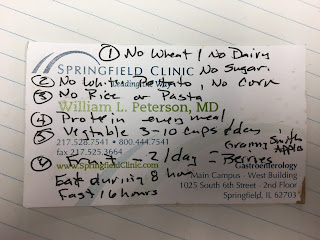 ① No Wheat / No Dairy
SPRINGFIELD CLINIC No Sugar
Leading the Way
② No White Potato, No Corn
③ No Rice or Pasta
William L. Peterson, MD
④ Protein every meal
⑤ Vegtable 3-10 cups /day
217.528.7541 • 800.444.7541
Granny Smith
Apples
fax 217.525.3664
2/day = Berries
www.SpringfieldClinic.com
Gastroenterology
Eat during 8 hour
Main Campus - West Building
1025 South 6th Street - 2nd Floor
Fast 16 hours
Springfield, IL 62703